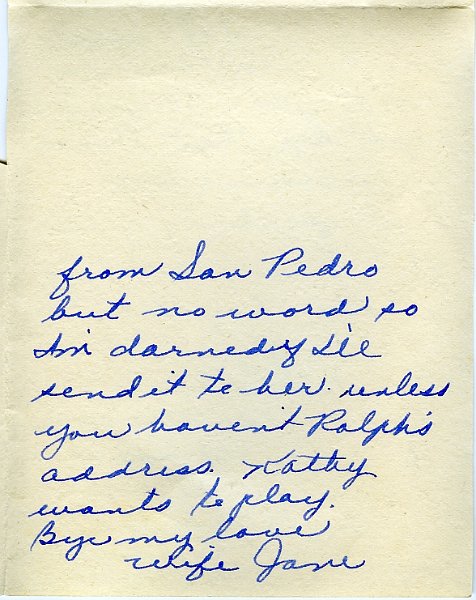 from San Pedro
but no word so
Im darned if I'll
send it to her. unless
you haven't Ralph's
address. Kathy
wants to play.
Bye my love
Wife Jane